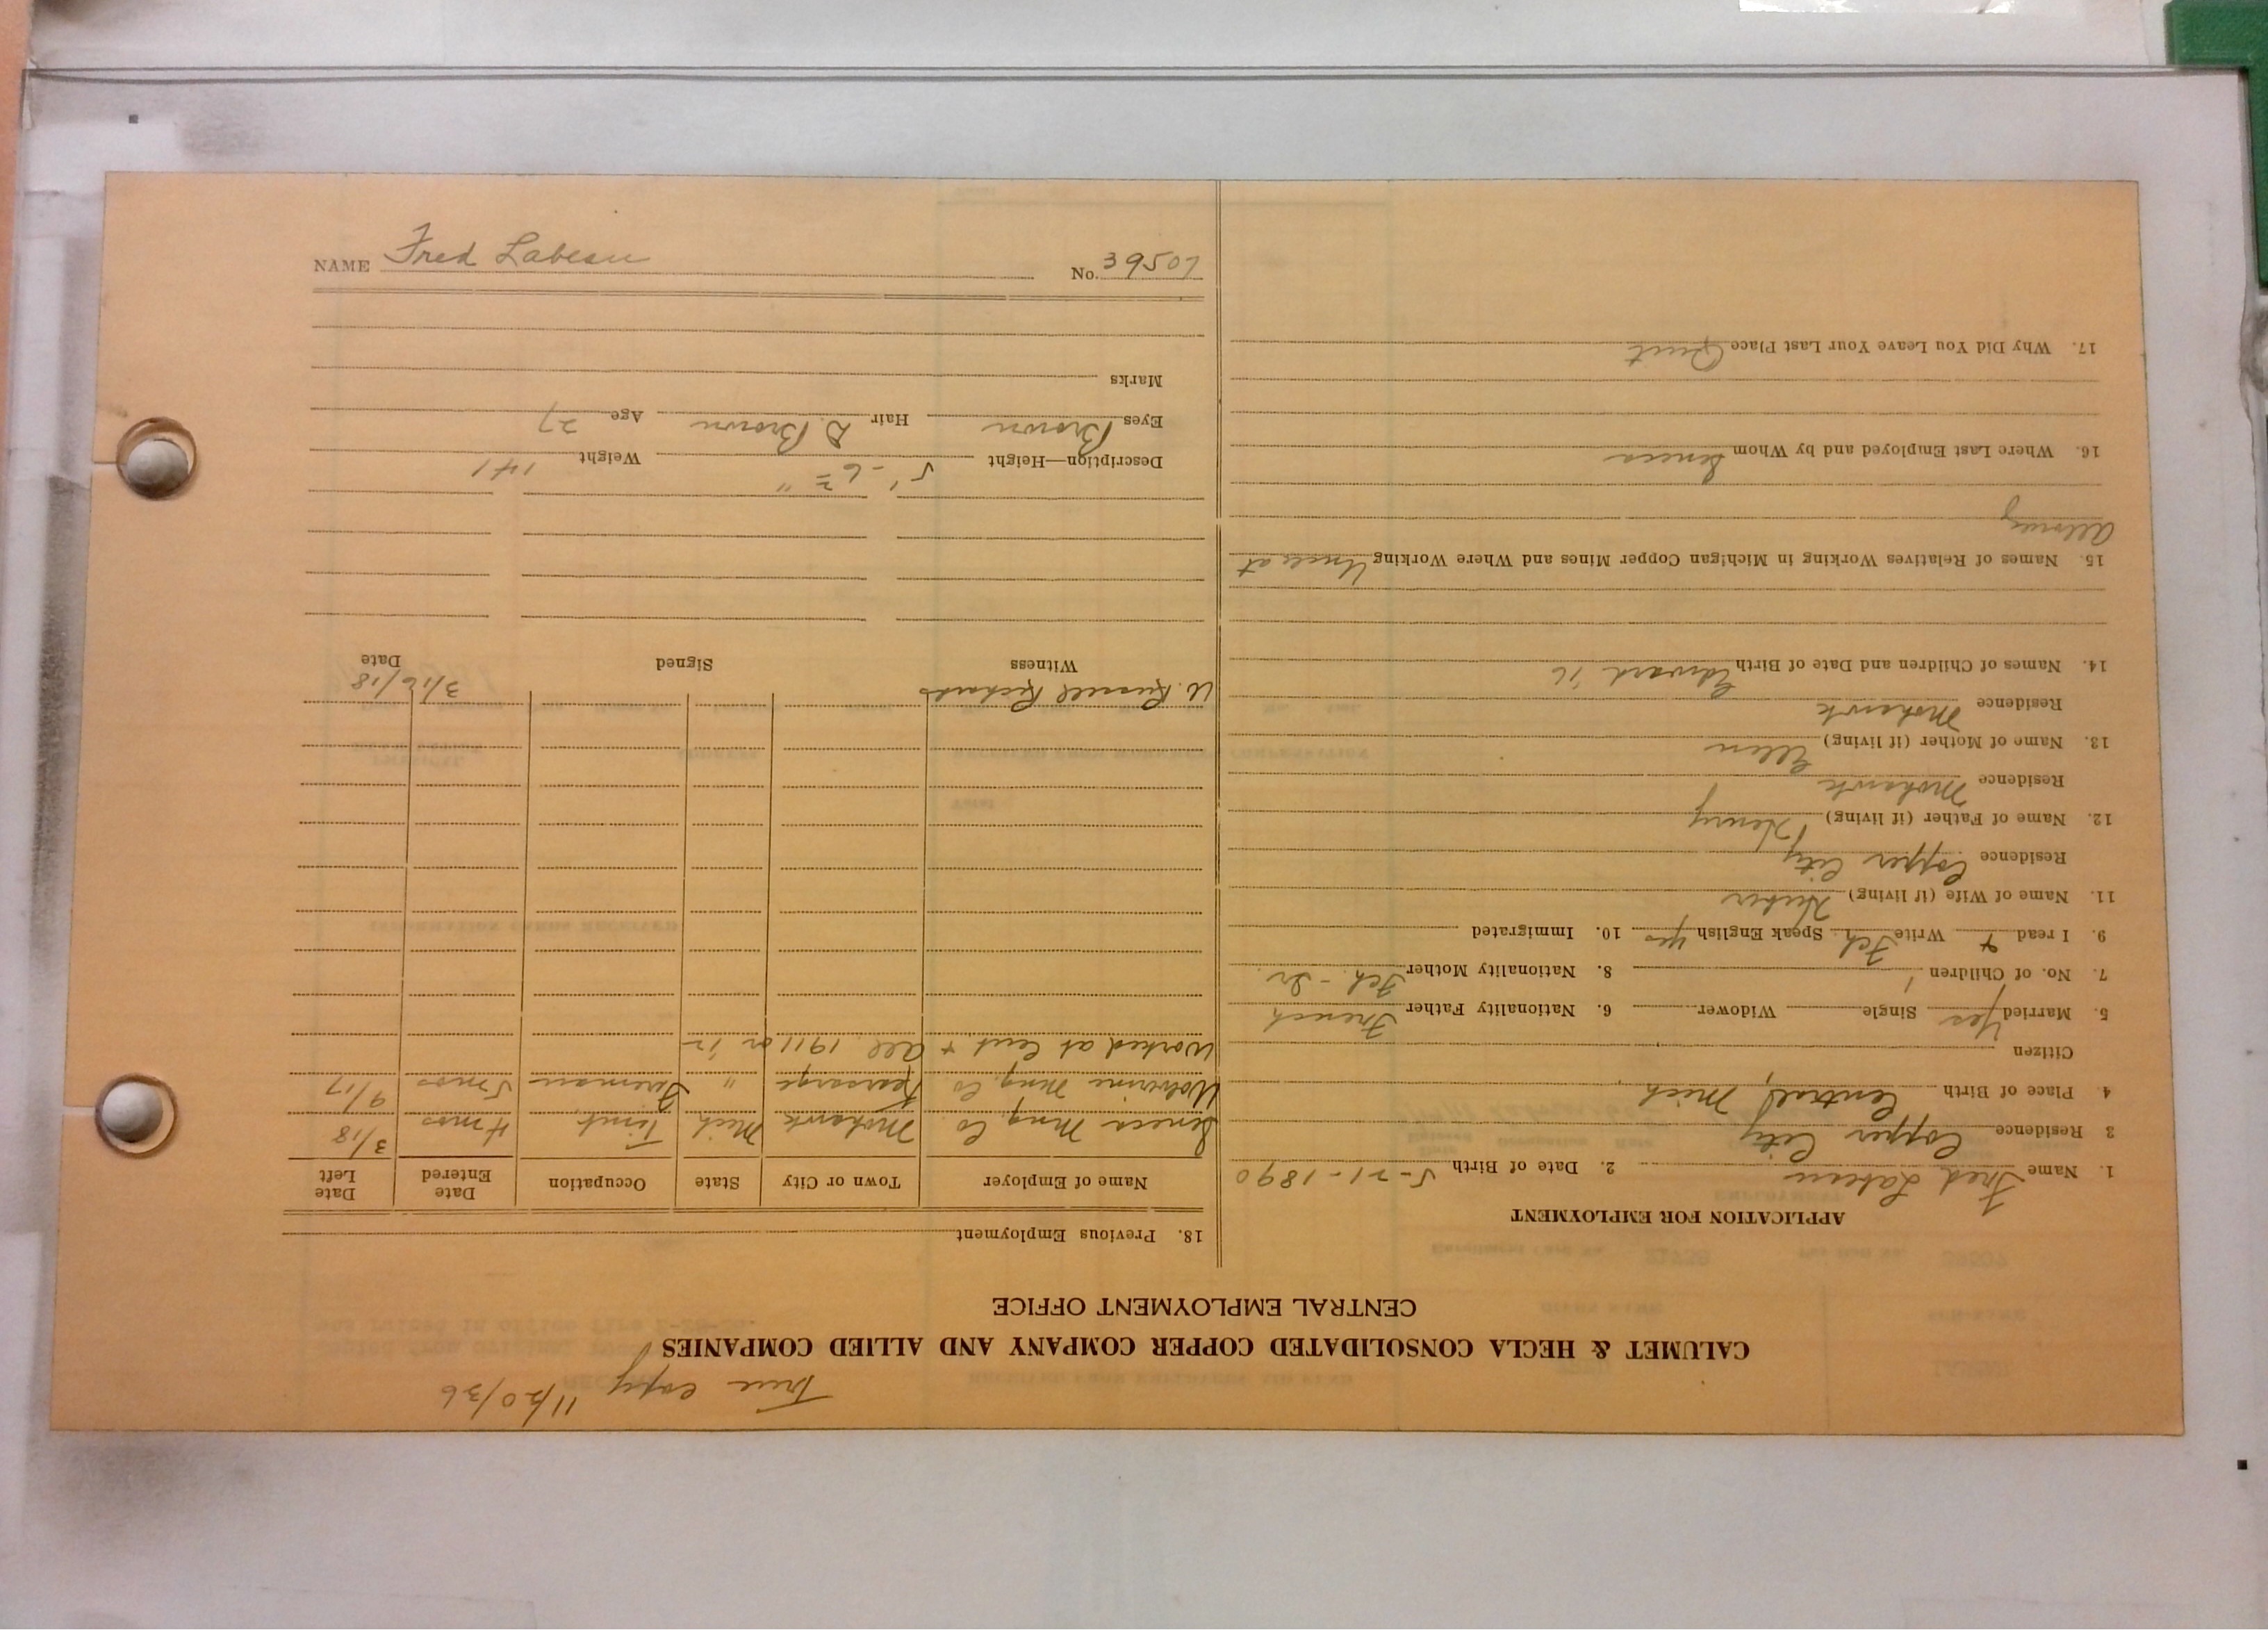 True copy 11/20/36
CALUMET & HECLA CONSOLIDATED COPPER COMPANY AND ALLIED COMPANIES
CENTRAL EMPLOYMENT OFFICE
APPLICATION FOR EMPLOYMENT
1. Name Fred Labeau 2. Date of Birth 5-21-1890
3 Residence Copper City
4. Place of Birth Central, Mich.
Citizen
5. Married Yes Single Widower 6. Nationality Father French
7. No. of Children 1 8. Nationality Mother Fch.-Ir.
9. I read + Write Fch Speak English yes 10. Immigrated
11. Name of Wife (if living)
Residence Copper City
12. Name of Father (if living) Henry
Residence Mohawk
13. Name of Mother (if living) Ellen
Residence Mohawk
14. Names of Children and Date of Birth Edward '16
15. Names of Relatives Working in Michigan Copper Mines and Where Working Uncle at
Allouez
16. Where Last Employed and by Whom Seneca
17. Why Did You Leave Your Last Place Quit
18. Previous Employment
Name of Employer Town or City State Occupation Date Entered Date Left
Seneca Mng. Co. Mohawk Mich Timb. 4 mos 3/18
Wolverine Mng. Co Kearsarge " Fireman 5 mos 9/17
Worked at Cent + All. 1911 or '12
W. Russell Richards 3/12/18
Witness Signed Date
Description—Height 5'-6" Weight 141
Eyes Brown Hair D. Brown Age 27
Marks
NAME Fred Labeau No. 39507